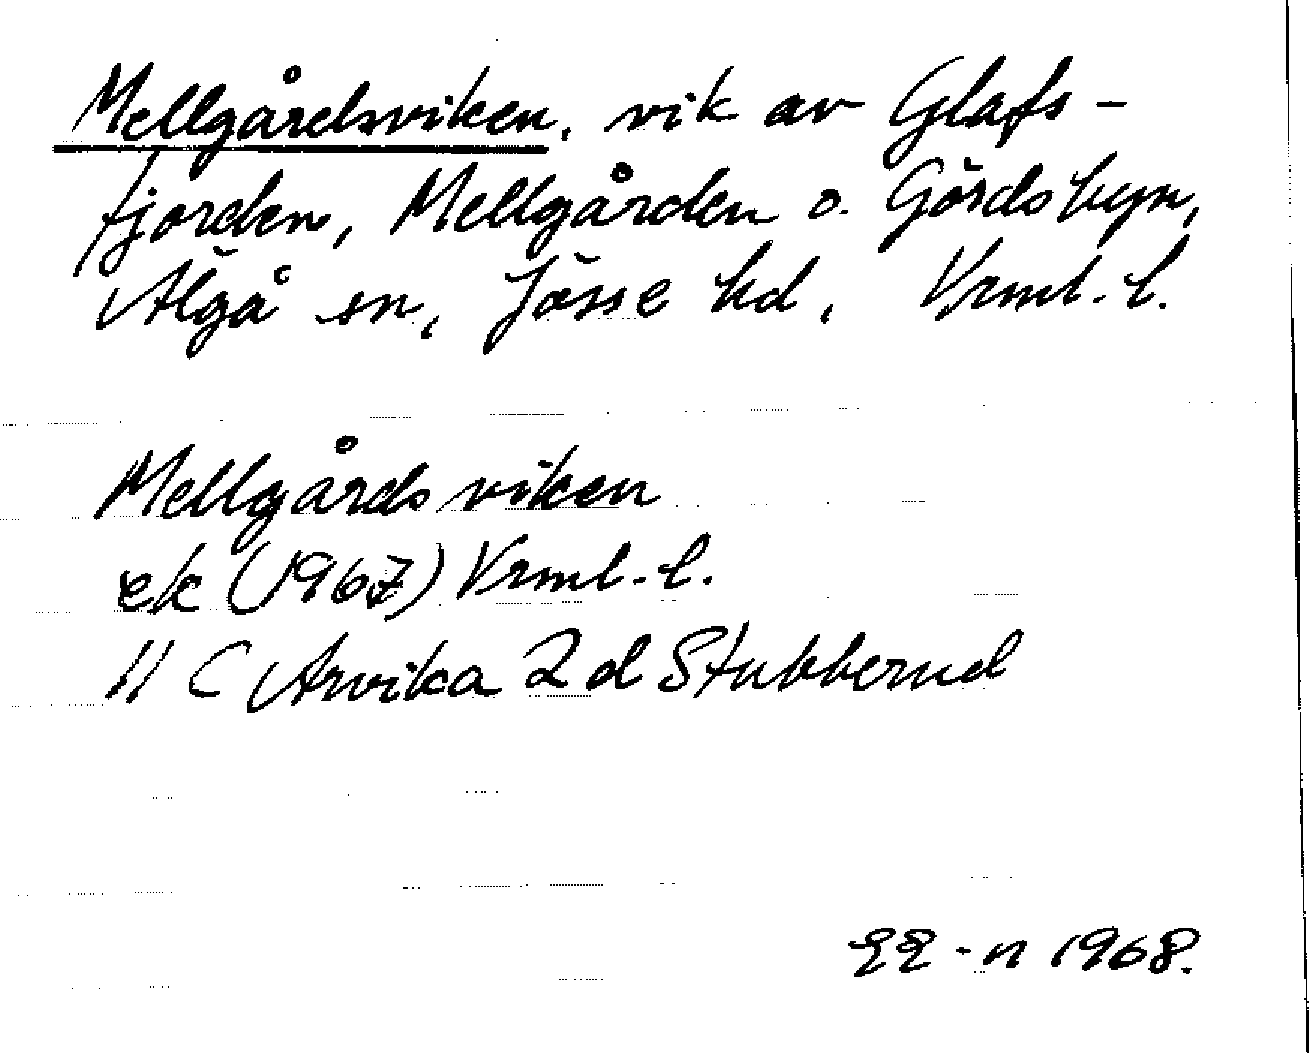 Mellgårdsviken, vik av Glafs-
fjorden, Mellgården o. Gördsbyn,
Älgå sn, Jösse hd, Vrml. l.
Mellgårdsviken
ek (1967) Vrml. l.
11 C Arvika 2 d Stubberud
EE-n 1968.